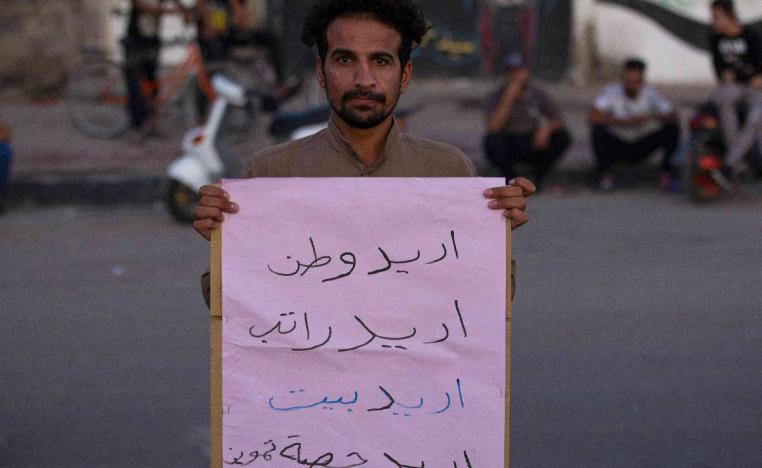 اريد وطن
اريد راتب
اريد بيت
اريد حصة تموين